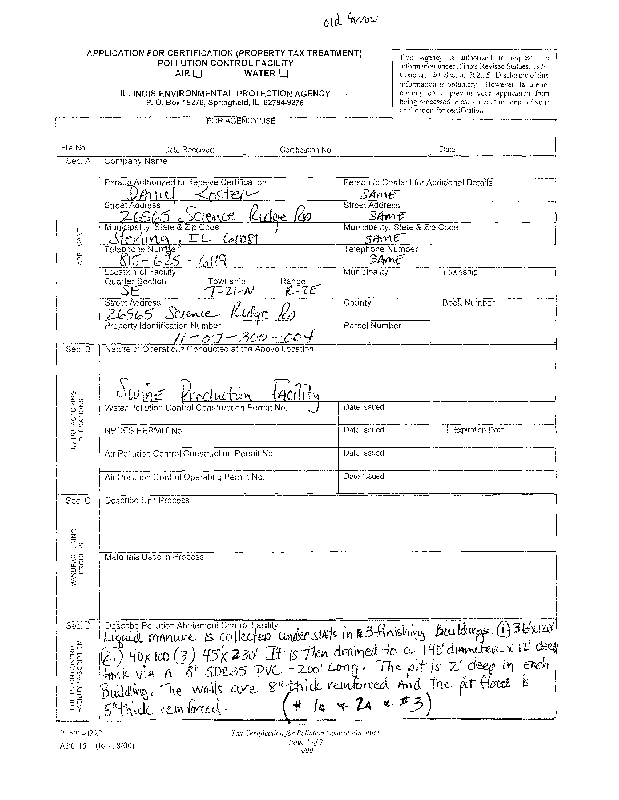 old farrow
APPLICATION FOR CERTIFICATION (PROPERTY TAX TREATMENT)
POLLUTION CONTROL FACILITY
AIR WATER
ILLINOIS ENVIRONMENTAL PROTECTION AGENCY
P. O. Box 19276, Springfield, IL 62794-9276
This Agency is authorized to request
information under Illinois Revised Statutes,
Disclosure of this
information is voluntary. However, failure to
your application from
being processed
for certification.
FOR AGENCY USE
File No. Date Received Certification No. Date
Sec. A Company Name
Person Authorized to Receive Certification Person to Contact for Additional Details
Daniel Koster SAME
Street Address Street Address
26565 Science Ridge Rd SAME
Municipality, State & Zip Code Municipality, State & Zip Code
Sterling, IL 61081 SAME
Telephone Number Telephone Number
815-625-6119 SAME
Location of Facility Municipality Township
Quarter Section Township Range
SE T-21-N R-7E
Street Address County Book Number
26565 Science Ridge Rd
Property Identification Number Parcel Number
11-07-300-004
APPLICANT
Sec. B Nature of Operations Conducted at the Above Location
Swine Production Facility
Water Pollution Control Construction Permit No. Date Issued
NPDES PERMIT No. Date Issued Expiration Date
Air Pollution Control Construction Permit No. Date Issued
Air Pollution Control Operating Permit No. Date Issued
Sec. C Describe Unit Process
MANUFACTURING PROCESS
Materials Used in Process
Sec. D Describe Pollution Abatement Control Facility
Liquid manure is collected under slats in 3 finishing Buildings. (1) 36x120
(2.) 40x100 (3) 45x230 It is then drained to a 140' diameter x 12' deep
tank via A 8" SDR35 PVC -200' Long. The pit is 2' deep in each
Building. The walls are 8" thick reinforced and the pit floor is
5" thick reinforced. (# 1a & 2a & #3)
Tax Certification for Pollution Control Facilities
Page 1 of 2